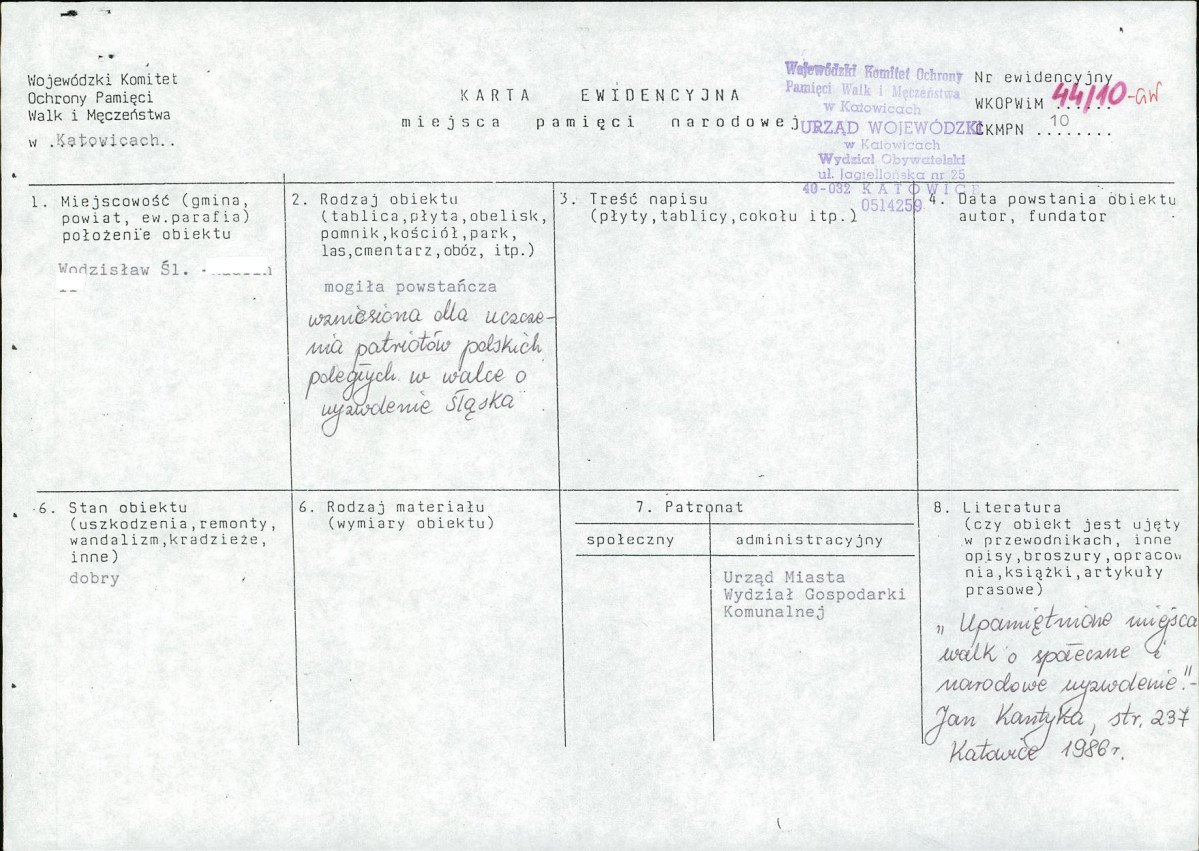 Wojewódzki Komitet
Ochrony Pamięci
Walk i Męczeństwa
w .Katowicach..
KARTA EWIDENCYJNA
miejsca pamięci narodowej
Wojewódzki Komitet Ochrony
Pamięci Walk i Męczeństwa
w Katowicach
URZĄD WOJEWÓDZKI
w Katowicach
Wydział Obywatelski
ul. Jagiellońska nr 25
40-032 KATOWICE
0514259
Nr ewidencyjny
WKOPWiM 44/10-GW
CKMPN ..10......
1. Miejscowość (gmina,
powiat, ew.parafia)
położenie obiektu
Wodzisław Śl. -
2. Rodzaj obiektu
(tablica,płyta,obelisk,
pomnik,kościół,park,
las,cmentarz,obóz, itp.)
mogiła powstańcza
wzniesiona dla uczcze-
nia patriotów polskich
poległych w walce o
wyzwolenie Śląska
3. Treść napisu
(płyty,tablicy,cokołu itp.)
4. Data powstania obiektu
autor, fundator
6. Stan obiektu
(uszkodzenia,remonty,
wandalizm,kradzieże,
inne)
dobry
6. Rodzaj materiału
(wymiary obiektu)
7. Patronat
społeczny
administracyjny
Urząd Miasta
Wydział Gospodarki
Komunalnej
8. Literatura
(czy obiekt jest ujęty
w przewodnikach, inne
opisy,broszury,opracow
nia,książki,artykuły
prasowe)
„Upamiętnione miejsca
walk o społeczne i
narodowe wyzwolenie."-
Jan Kantyka, str. 237
Katowice 1986r.